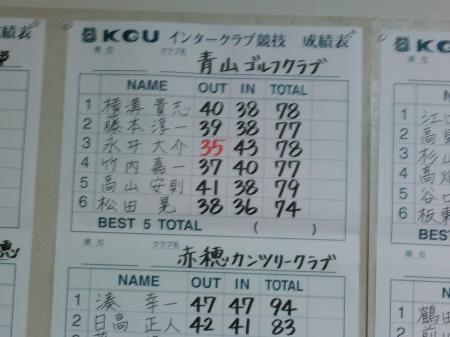 KGU インタークラブ競技 成績表
順位 クラブ名 青山ゴルフクラブ
NAME OUT IN TOTAL
1 横溝 貴志 40 38 78
2 藤本 淳一 39 38 77
3 永井 大介 35 43 78
4 竹内 嘉一 37 40 77
5 高山 安則 41 38 79
6 松田 晃 38 36 74
BEST 5 TOTAL ( )
順位 クラブ名 赤穂カンツリークラブ
NAME OUT IN TOTAL
1 湊 幸一 47 47 94
2 日高 正人 42 41 83
成績表
穂
KG
順位
1 江
2 高
3 杉山
4 高畑
5 谷口
6 板東
BEST
順位
1 鶴田
2 前